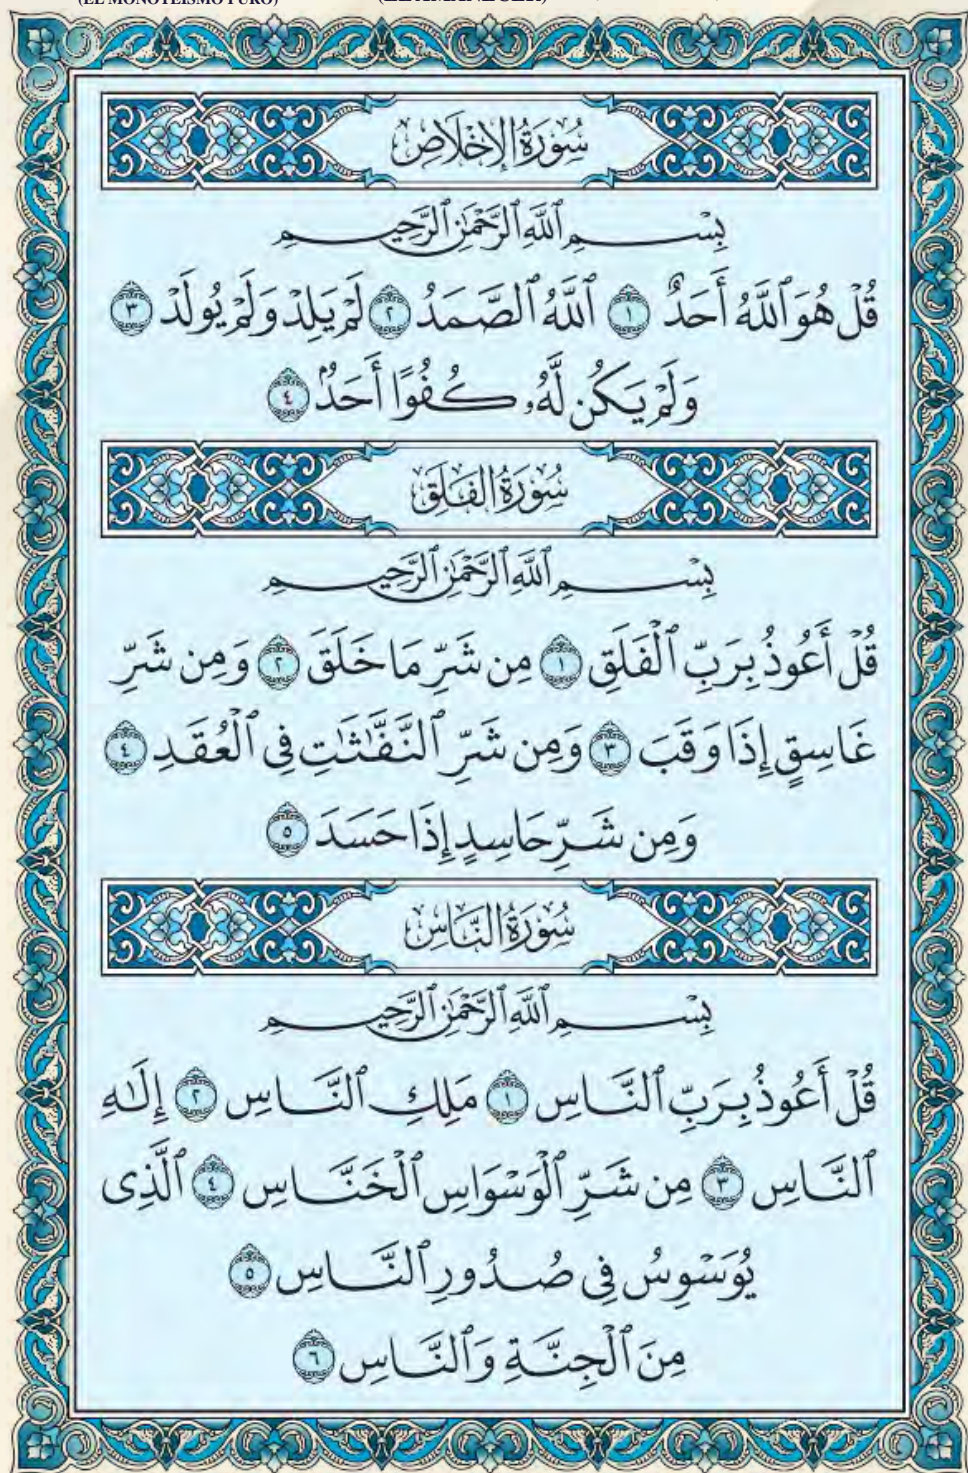 (EL MONOTEÍSMO PURO) (EL AMANECER)
سُورَةُ الإِخْلَاصِ
بِسْمِ ٱللَّهِ ٱلرَّحْمَٰنِ ٱلرَّحِيمِ
قُلْ هُوَ ٱللَّهُ أَحَدٌ ١ ٱللَّهُ ٱلصَّمَدُ ٢ لَمْ يَلِدْ وَلَمْ يُولَدْ ٣
وَلَمْ يَكُن لَّهُۥ كُفُوًا أَحَدٌۢ ٤
سُورَةُ الفَلَقِ
بِسْمِ ٱللَّهِ ٱلرَّحْمَٰنِ ٱلرَّحِيمِ
قُلْ أَعُوذُ بِرَبِّ ٱلْفَلَقِ ١ مِن شَرِّ مَا خَلَقَ ٢ وَمِن شَرِّ
غَاسِقٍ إِذَا وَقَبَ ٣ وَمِن شَرِّ ٱلنَّفَّٰثَٰتِ فِى ٱلْعُقَدِ ٤
وَمِن شَرِّ حَاسِدٍ إِذَا حَسَدَ ٥
سُورَةُ النَّاسِ
بِسْمِ ٱللَّهِ ٱلرَّحْمَٰنِ ٱلرَّحِيمِ
قُلْ أَعُوذُ بِرَبِّ ٱلنَّاسِ ١ مَلِكِ ٱلنَّاسِ ٢ إِلَٰهِ
ٱلنَّاسِ ٣ مِن شَرِّ ٱلْوَسْوَاسِ ٱلْخَنَّاسِ ٤ ٱلَّذِى
يُوَسْوِسُ فِى صُدُورِ ٱلنَّاسِ ٥
مِنَ ٱلْجِنَّةِ وَٱلنَّاسِ ٦